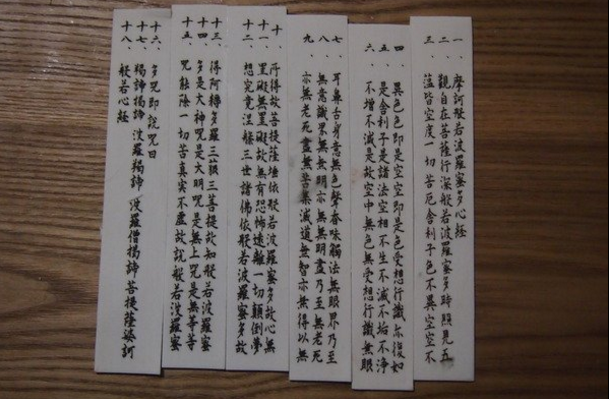 一、摩訶般若波羅蜜多心経
二、観自在菩薩行深般若波羅蜜多時照見五
三、蘊皆空度一切苦厄舎利子色不異空空不
四、異色色即是空空即是色受想行識亦復如
五、是舎利子是諸法空相不生不滅不垢不浄
六、不増不減是故空中無色無受想行識無眼
七、耳鼻舌身意無色聲香味觸法無眼界乃至
八、無意識界無無明亦無無明盡乃至無老死
九、亦無老死盡無苦集滅道無智亦無得以無
十、所得故菩提薩埵依般若波羅蜜多故心無
十一、罣礙無罣礙故無有恐怖遠離一切顛倒夢
十二、想究竟涅槃三世諸佛依般若波羅蜜多故
十三、得阿耨多羅三藐三菩提故知般若波羅蜜
十四、多是大神咒是大明咒是無上咒是無等等
十五、咒能除一切苦真実不虚故説般若波羅蜜
十六、多咒即説咒曰
十七、羯諦羯諦 波羅羯諦 波羅僧羯諦 菩提薩婆訶
十八、般若心経